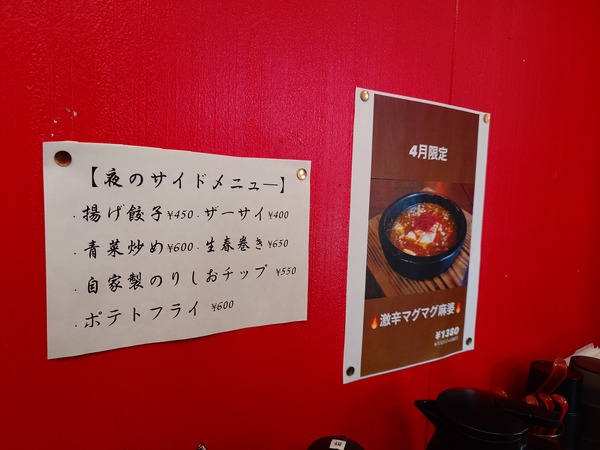 【夜のサイドメニュー】
・揚げ餃子 ¥450 ・ザーサイ ¥400
・青菜炒め ¥600 ・生春巻き ¥650
・自家製のりしおチップ ¥550
・ポテトフライ ¥600
4月限定
🔥激辛マグマグ麻婆🔥
¥1380